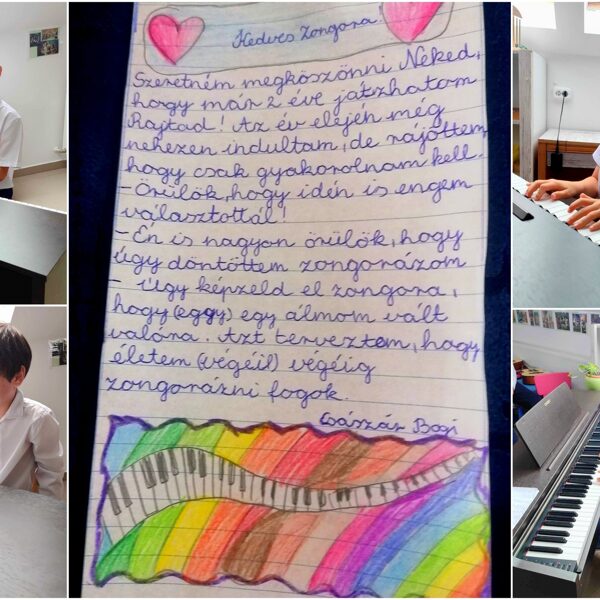 Kedves Zongora!
Szeretném megköszönni Neked,
hogy már 2 éve játzhatom
Rajtad! Az év elején még
nehezen indultam, de rájöttem,
hogy csak gyakorolnom kell.
- Örülök, hogy idén is engem
választottál!
- Én is nagyon örülök, hogy
úgy döntöttem zongorázom
- Úgy képzeld el zongora,
hogy (eggy) egy álmom vált
valóra. Azt terveztem, hogy
életem (végéil) végéig
zongorázni fogok.
Császár Bogi